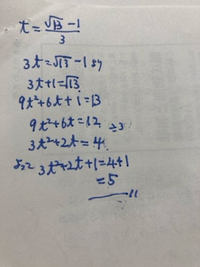 t = (√13 - 1)/3
3t = √13 - 1 より
3t+1 = √13
9t²+6t+1 = 13
9t²+6t = 12 ÷3
3t²+2t = 4
よって 3t²+2t+1 = 4+1
= 5